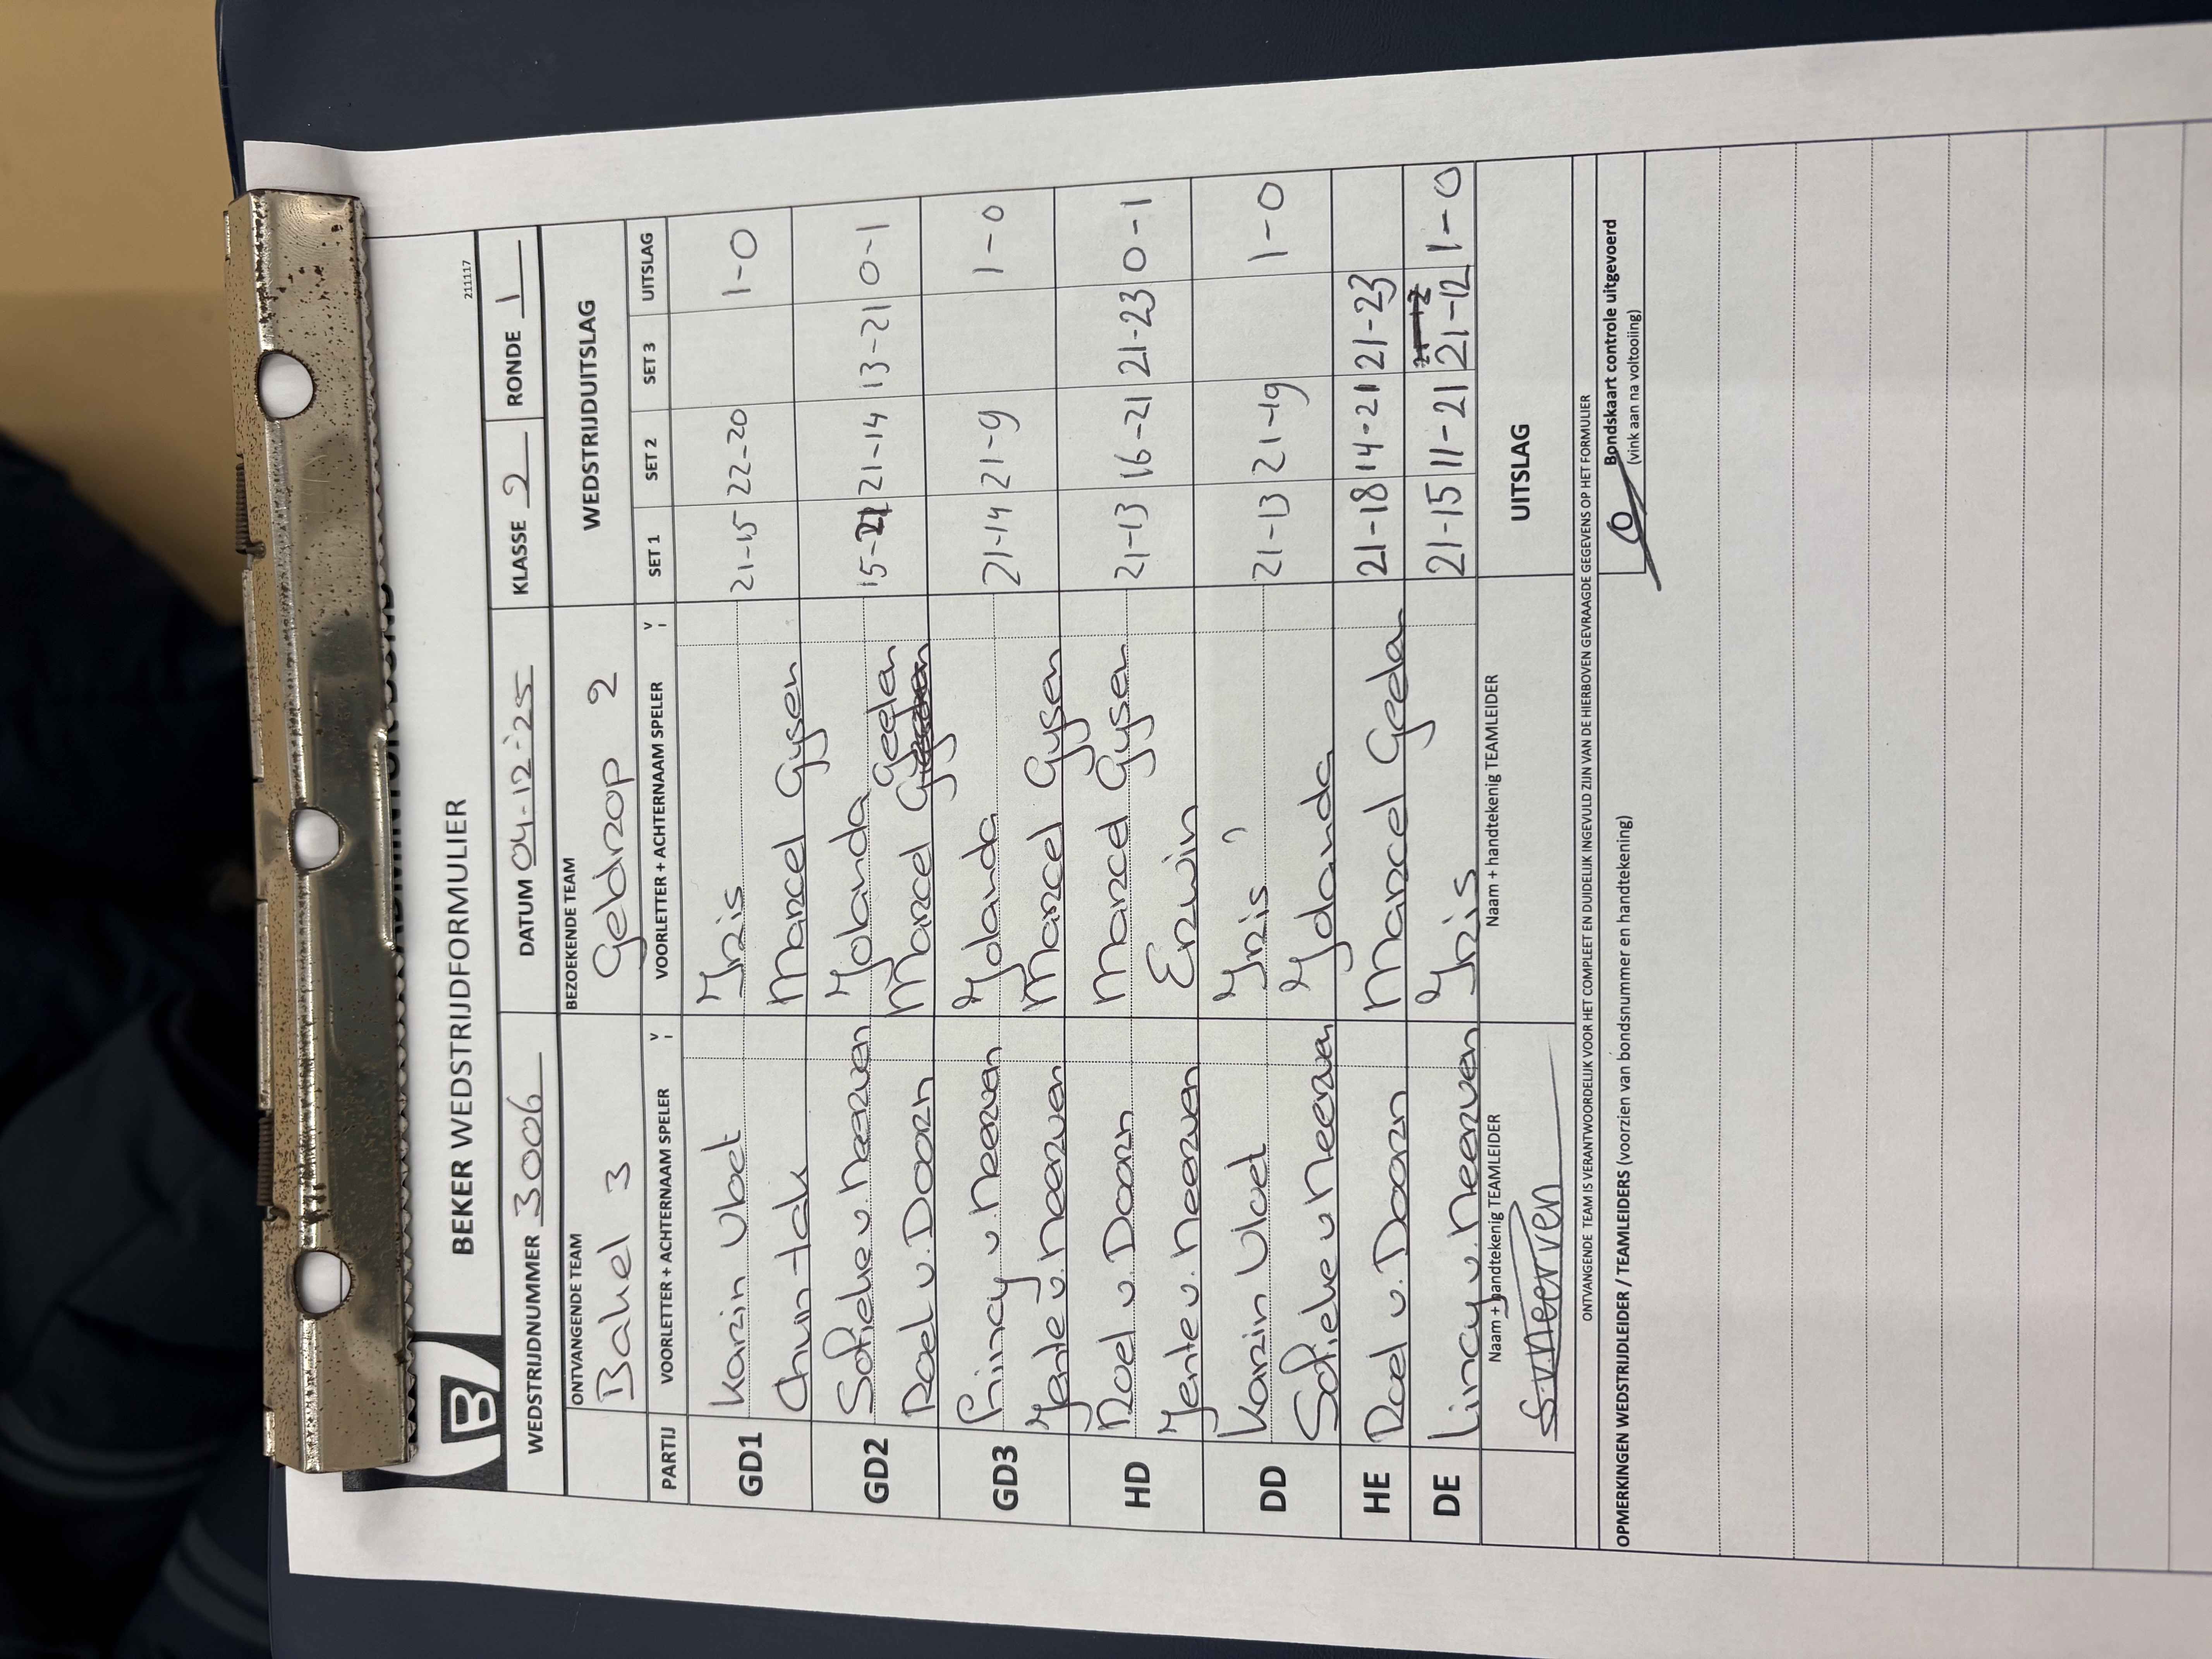 BEKER WEDSTRIJDFORMULIER
211117
WEDSTRIJDNUMMER 3006 DATUM 04-12-'25 KLASSE 2 RONDE 1
ONTVANGENDE TEAM BEZOEKENDE TEAM WEDSTRIJDUITSLAG
Bakel 3 Geldrop 2
PARTIJ VOORLETTER + ACHTERNAAM SPELER V VOORLETTER + ACHTERNAAM SPELER V SET 1 SET 2 SET 3 UITSLAG
GD1 Karin Vloet Iris 21-15 22-20 1-0
Chun Hak Marcel Gijsen
GD2 Sofieke v. Neerven Yolanda 15-21 21-14 13-21 0-1
Roel v. Doorn Marcel Geelen
GD3 Lincy v. Neerven Yolanda 21-14 21-9 1-0
Jente v. Neerven Marcel Gijsen
HD Roel v. Doorn Marcel Gijsen 21-13 16-21 21-23 0-1
Jente v. Neerven Erwin
DD Karin Vloet Iris 21-13 21-19 1-0
Sofieke v Neerven Yolanda
HE Roel v. Doorn Marcel Geelen 21-18 14-21 21-23
DE Lincy v. Neerven Iris 21-15 11-21 21-12 1-0
Naam + handtekenig TEAMLEIDER Naam + handtekenig TEAMLEIDER UITSLAG
S.v.Neerven
ONTVANGENDE TEAM IS VERANTWOORDELIJK VOOR HET COMPLEET EN DUIDELIJK INGEVULD ZIJN VAN DE HIERBOVEN GEVRAAGDE GEGEVENS OP HET FORMULIER
OPMERKINGEN WEDSTRIJDLEIDER / TEAMLEIDERS (voorzien van bondsnummer en handtekening)
Bondskaart controle uitgevoerd
(vink aan na voltooiing)